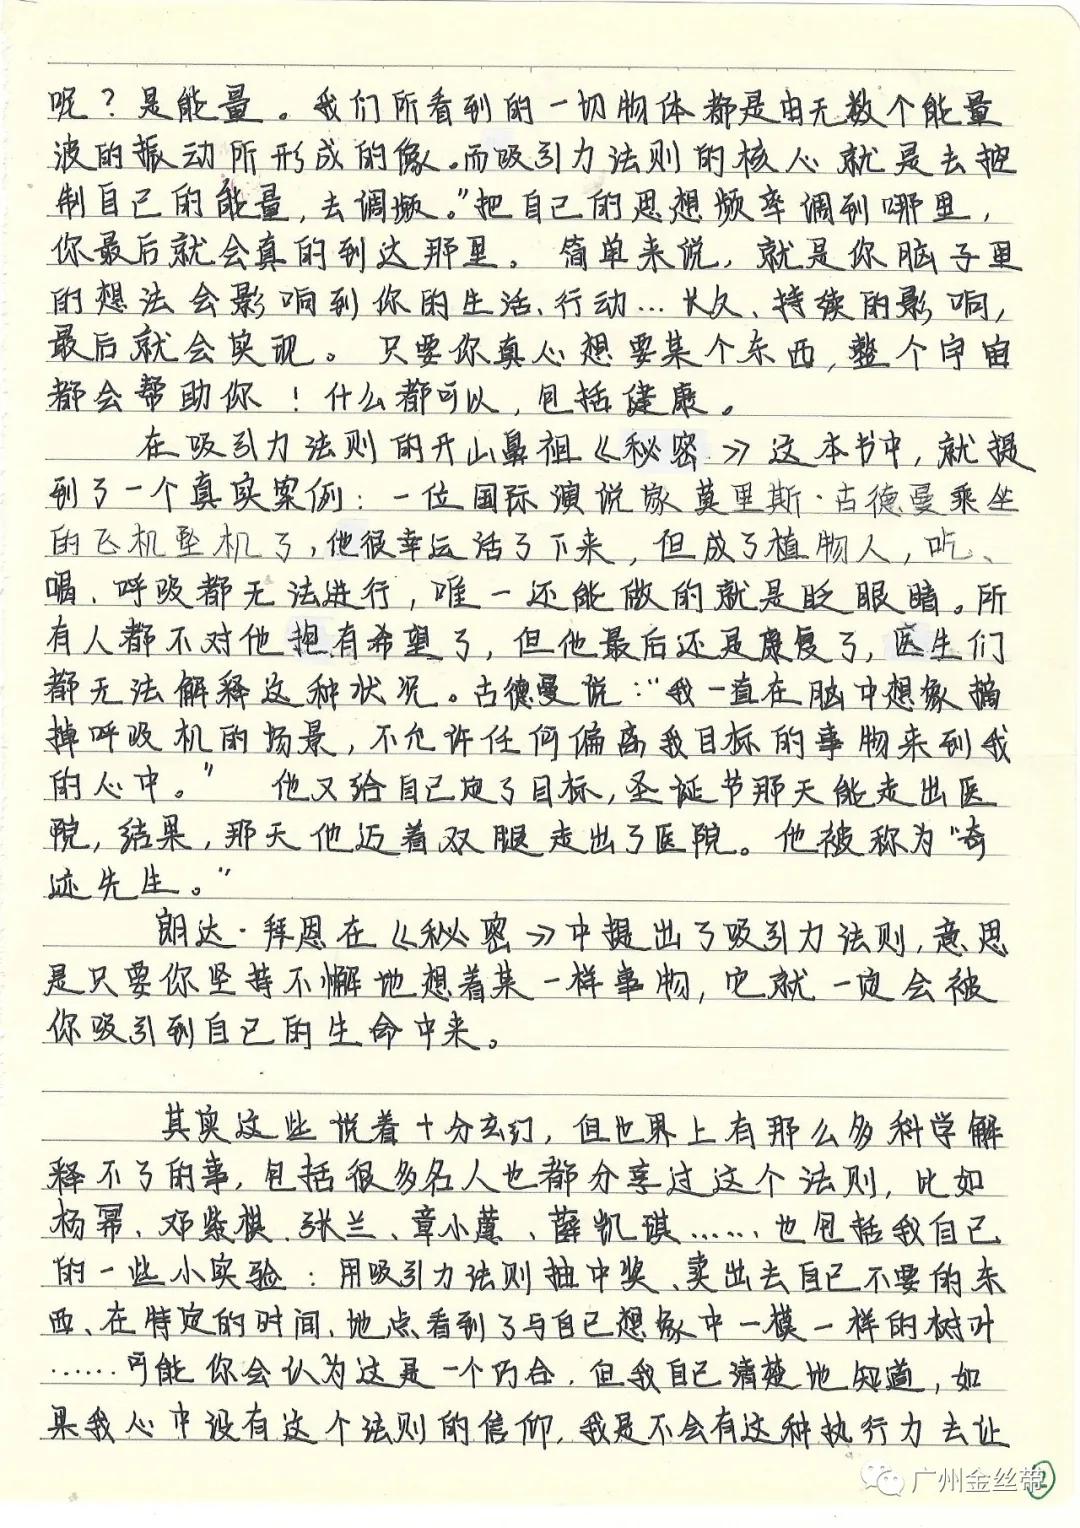 呢？是能量。我们所看到的一切物体都是由无数个能量
波的振动所形成的像。而吸引力法则的核心就是去控
制自己的能量，去调频。”把自己的思想频率调到哪里，
你最后就会真的到达那里。简单来说，就是你脑子里
的想法会影响到你的生活、行动…长久、持续的影响，
最后就会实现。只要你真心想要某个东西，整个宇宙
都会帮助你！什么都可以，包括健康。
在吸引力法则的开山鼻祖《秘密》这本书中，就提
到了一个真实案例：一位国际演说家莫里斯·古德曼乘坐
的飞机坠机了，他很幸运活了下来，但成了植物人，吃、
喝、呼吸都无法进行，唯一还能做的就是眨眼睛。所
有人都不对他抱有希望了，但他最后还是康复了，医生们
都无法解释这种状况。古德曼说：“我一直在脑中想象摘
掉呼吸机的场景，不允许任何偏离我目标的事物来到我
的心中。”他又给自己定了目标，圣诞节那天能走出医
院，结果，那天他迈着双腿走出了医院。他被称为“奇
迹先生。”
朗达·拜恩在《秘密》中提出了吸引力法则，意思
是只要你坚持不懈地想着某一样事物，它就一定会被
你吸引到自己的生命中来。
其实这些说着十分玄幻，但世界上有那么多科学解
释不了的事，包括很多名人也都分享过这个法则，比如
杨幂、邓紫棋、张兰、章小蕙、薛凯琪……也包括我自己
的一些小实验：用吸引力法则抽中奖、卖出去自己不要的东
西、在特定的时间、地点看到了与自己想象中一模一样的树叶
……可能你会认为这是一个巧合，但我自己清楚地知道，如
果我心中没有这个法则的信仰，我是不会有这种执行力去让
广州金丝带
2